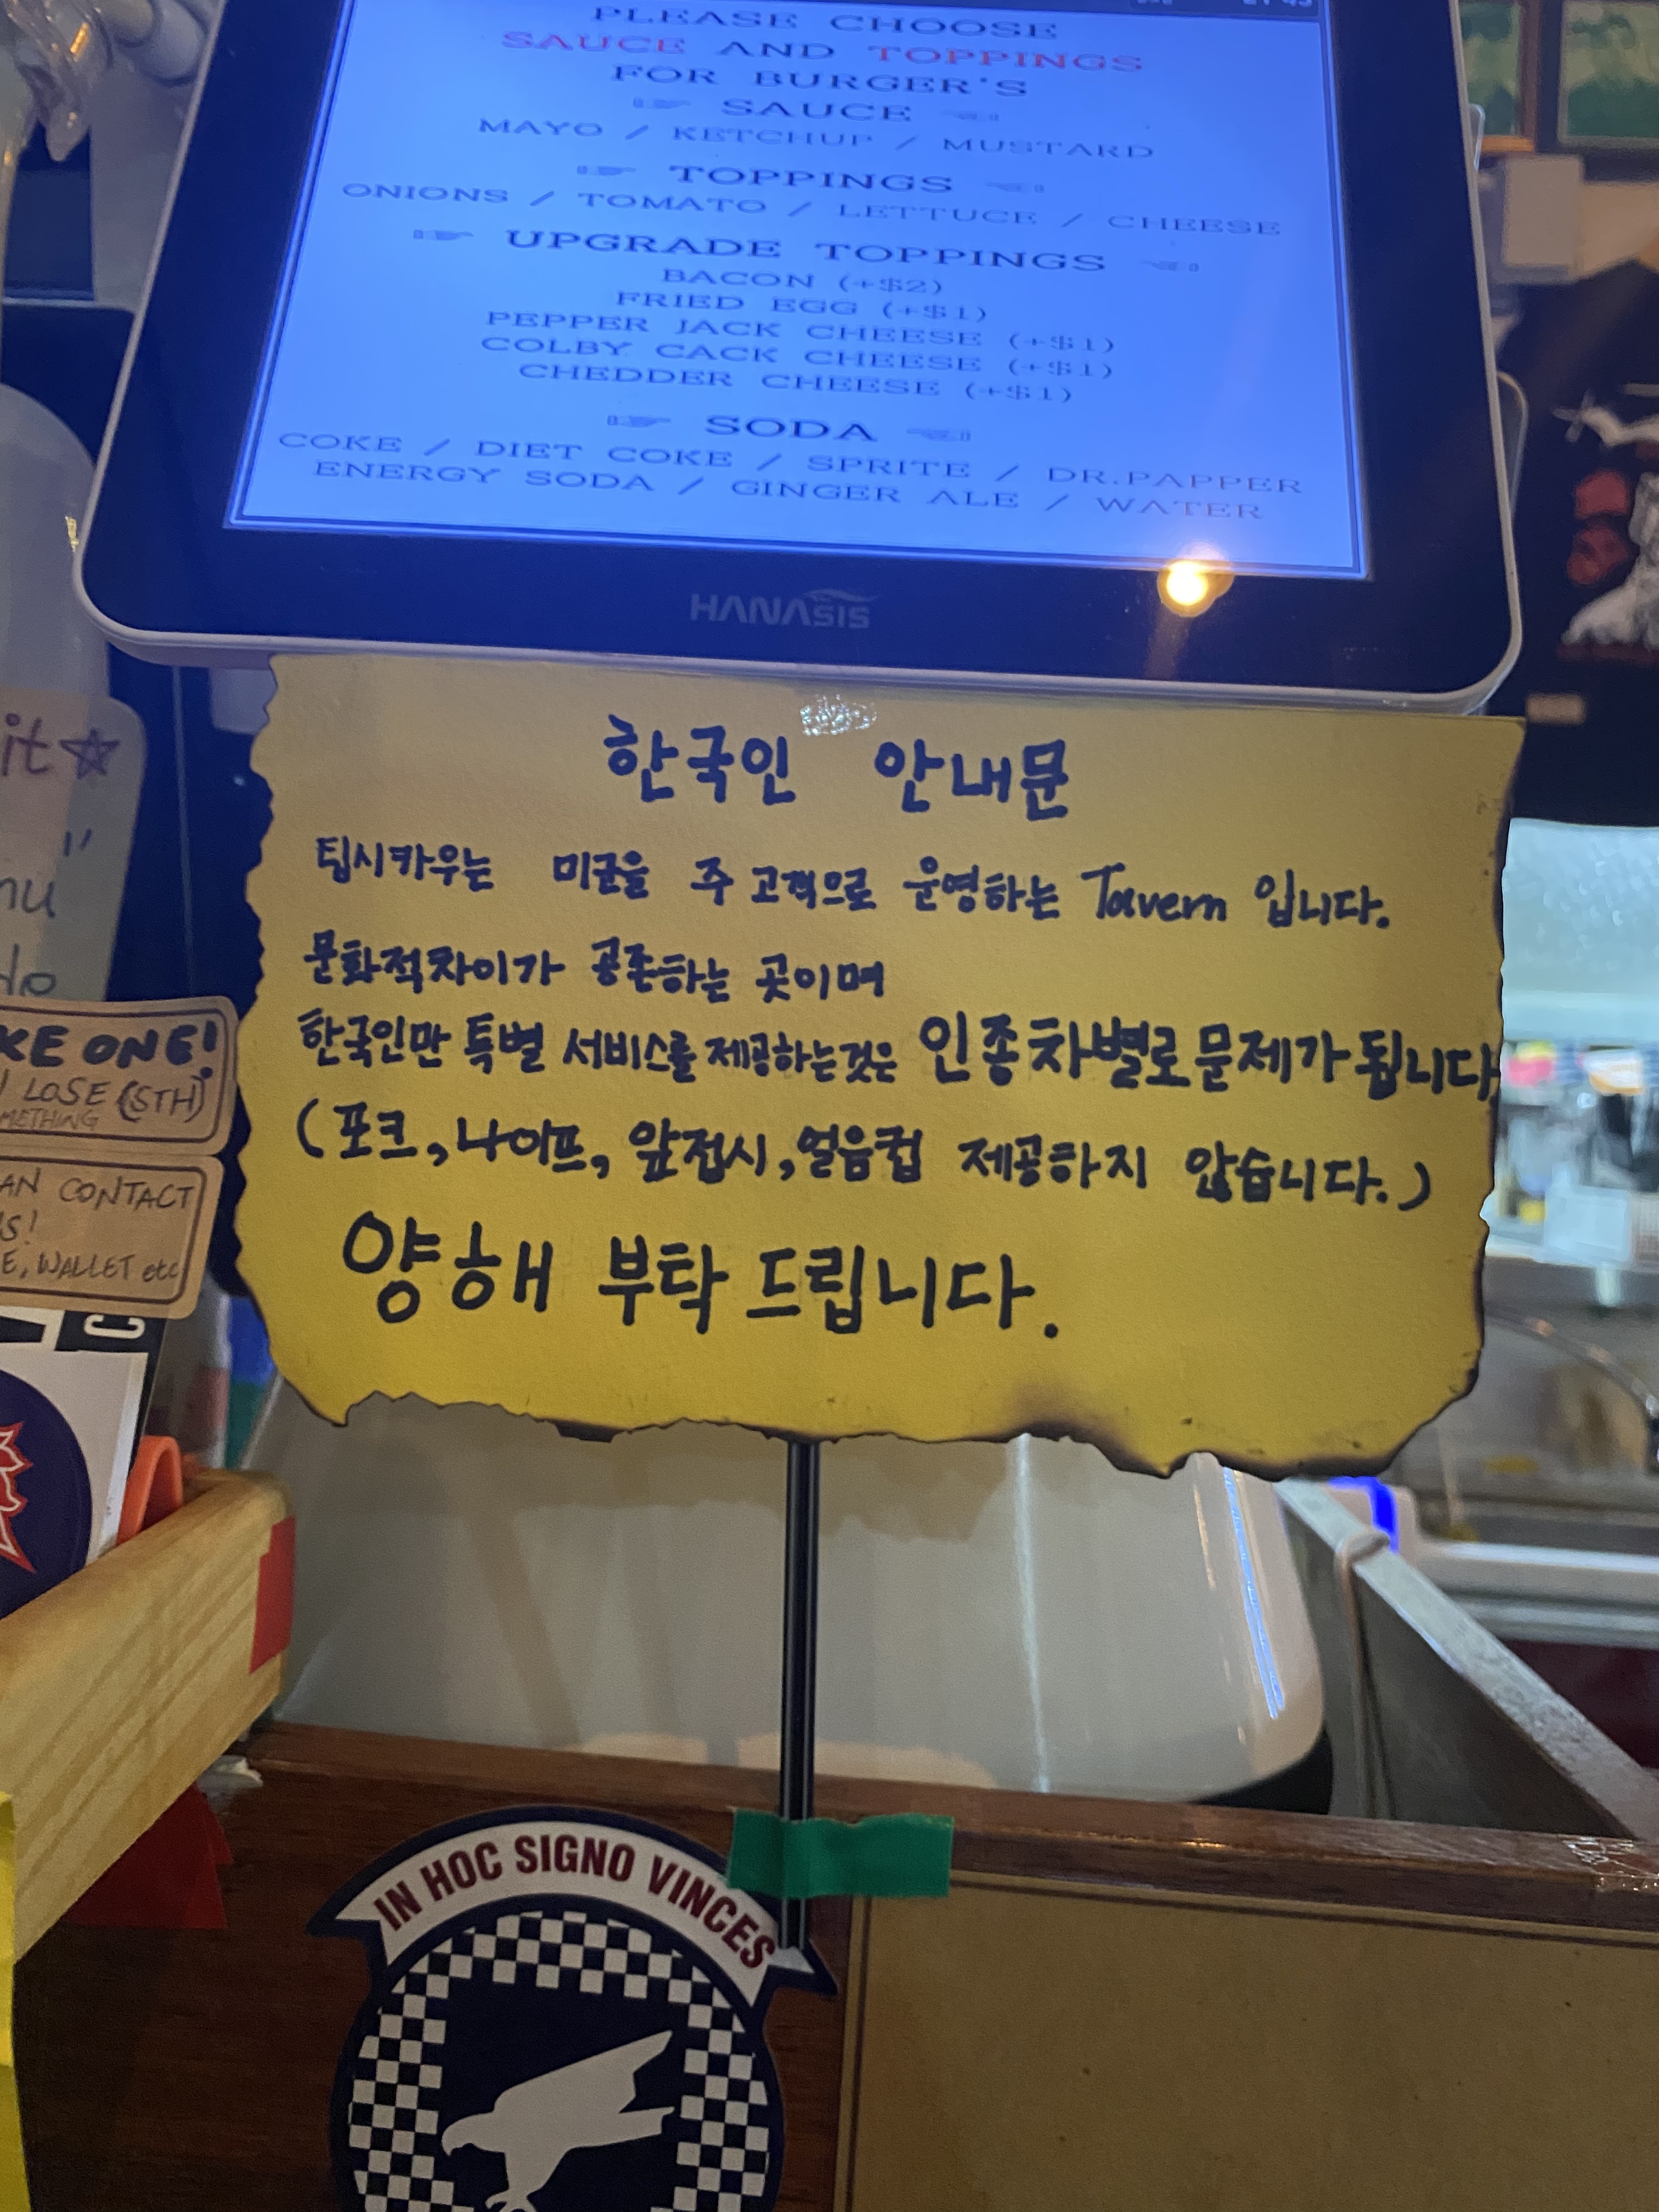 PLEASE CHOOSE
SAUCE AND TOPPINGS
FOR BURGER'S
SAUCE
MAYO / KETCHUP / MUSTARD
TOPPINGS
ONIONS / TOMATO / LETTUCE / CHEESE
UPGRADE TOPPINGS
BACON (+$2)
FRIED EGG (+$1)
PEPPER JACK CHEESE (+$1)
COLBY CACK CHEESE (+$1)
CHEDDER CHEESE (+$1)
SODA
COKE / DIET COKE / SPRITE / DR.PAPPER
ENERGY SODA / GINGER ALE / WATER
HANASIS
한국인 안내문
팁시카우는 미군을 주 고객으로 운영하는 Tavern 입니다.
문화적차이가 공존하는 곳이며
한국인만 특별 서비스를 제공하는것은 인종차별로 문제가 됩니다.
(포크, 나이프, 앞접시, 얼음컵 제공하지 않습니다.)
양해 부탁 드립니다.
it☆
KE ONE!
LOSE (STH)
METHING
AN CONTACT
S!
E, WALLET etc
IN HOC SIGNO VINCES